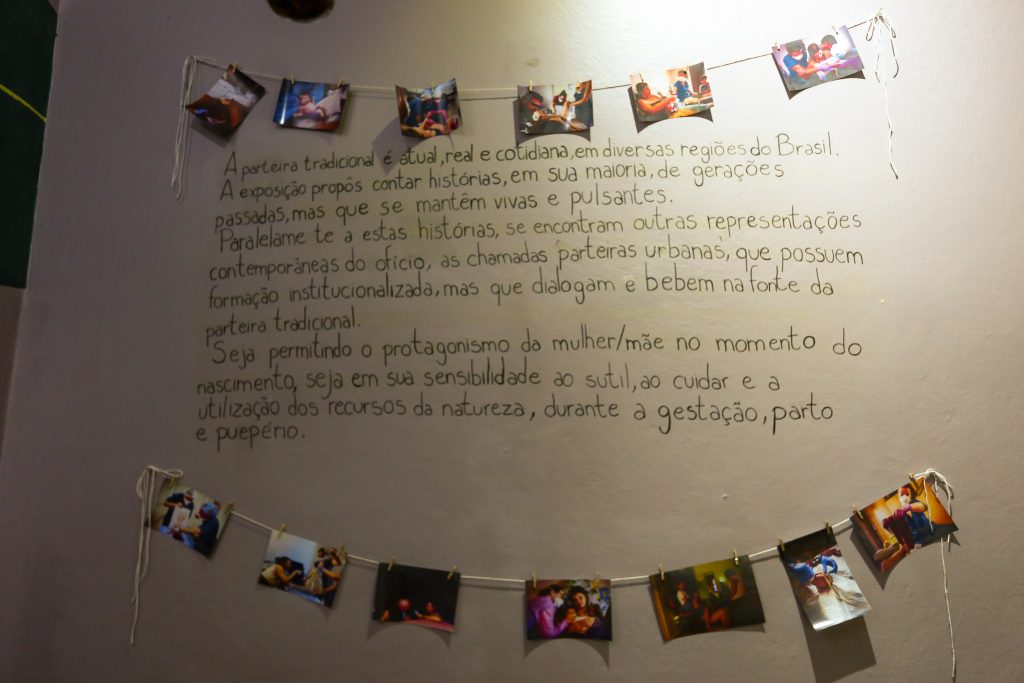 A parteira tradicional é atual, real e cotidiana, em diversas regiões do Brasil.
A exposição propôs contar histórias, em sua maioria, de gerações
passadas, mas que se mantêm vivas e pulsantes.
Paralelame te a estas histórias, se encontram outras representações
contemporâneas do ofício, as chamadas parteiras urbanas, que possuem
formação institucionalizada, mas que dialogam e bebem na fonte da
parteira tradicional.
Seja permitindo o protagonismo da mulher/mãe no momento do
nascimento, seja em sua sensibilidade ao sutil, ao cuidar e a
utilização dos recursos da natureza, durante a gestação, parto
e puepério.